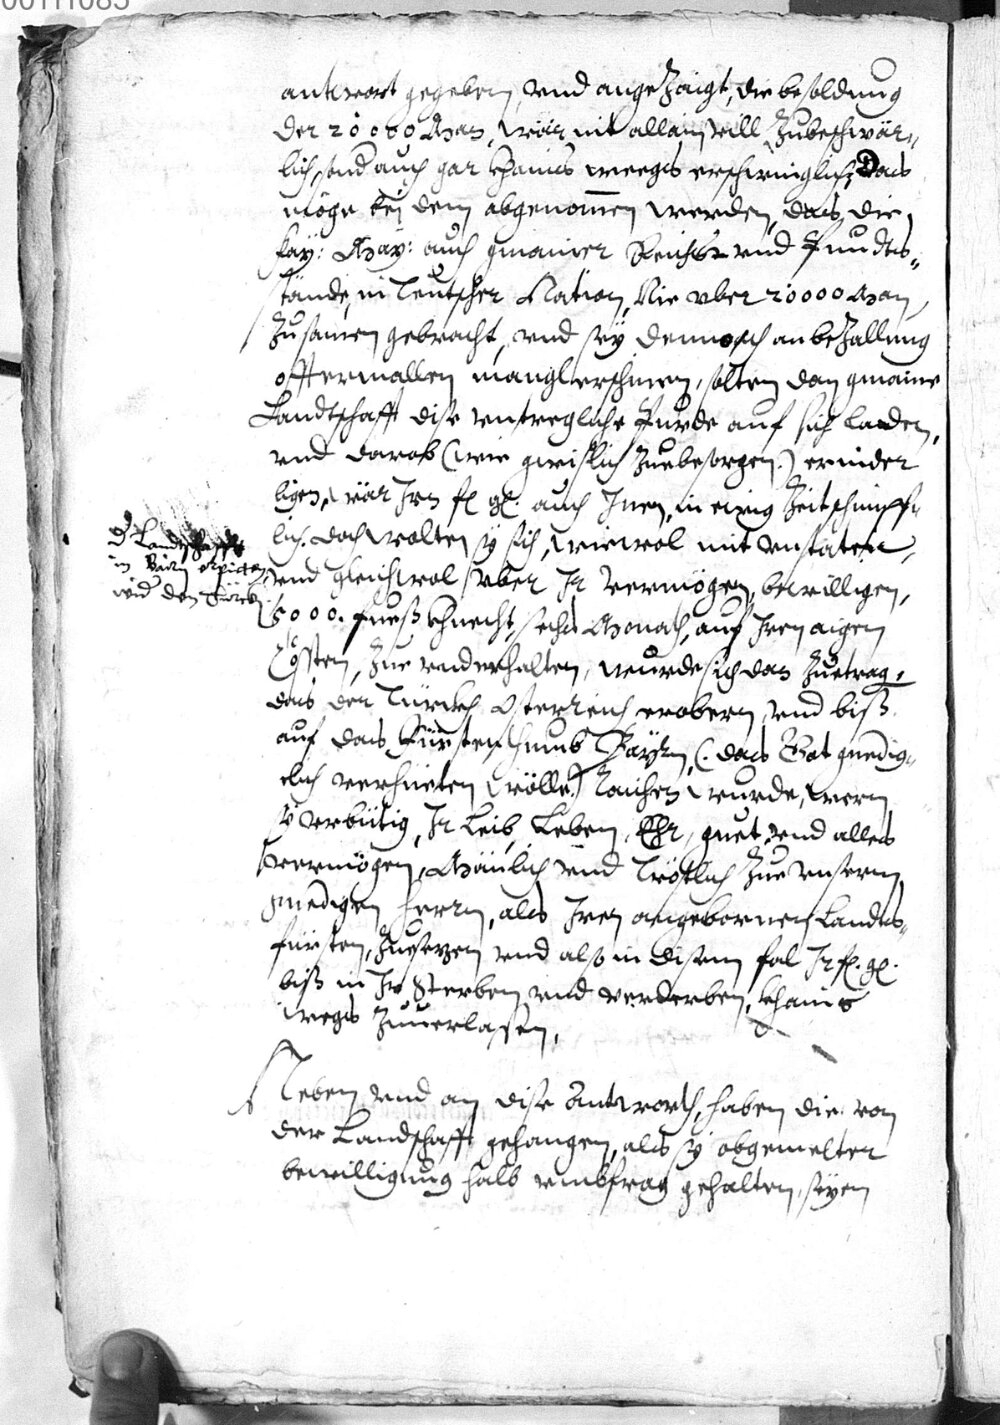 00111085
antwort gegeben, vnd angezaigt, die besoldung
der 20000 Man, wär nit allain vill zubeschwär-
lich, sond auch gar khains weegs erschwinglich, Das
möge bej dem abgenomen werden, das die
Kay: May: auch gmainer Reichs vnd
Stände, in Teutscher Nation, Nie vber 20000 Man
zusamen gebracht, vnd sey dennoch an bezallung
offtermallen mangl erschinen, solten dan gmaine
Landtschafft dise vntregliche Purde auf sich laden,
vnd darob (wie gwislich zuebesorgen) ernider
ligen, wär Irn fl gl. auch Inen, in ewig Zeit schimpf-
lich. doch wolten sy sich, wiewol mit vnstaten,
vnd gleichwol vber Ir vermögen, bewilligen,
5000. Fueßkhnecht, sechs Monath, auf Iren aigen
Cossten, zue vnderhalten, wurde sich dan zuetrag,
das der Türckh Osterreich erobern, vnd biß
auf das Fürstenthumb Bayrn, (das Got gnedig-
lich verhüeten wölle) raichen wurde, wern
sy verbütig, Ir Leib, Leben, Ehr, guet, vnd alles
vermögen, Mänlich vnd Tröstlich zue vnserm
gnedigen Herrn, als Iren angebornen Landts-
fürsten, zuesetzen vnd also in disem fal Ir fl. gl.
biß in Ir Sterben vnd verderben, khains
wegs zuuerlassen.
Neben vnd an dise Antworth, haben die von
der Landschafft gehangen, als sy obgemelter
bewilligung halb vmbfrag gehalten, seyen
d Landschafft
in Bairn
wid den Türckh